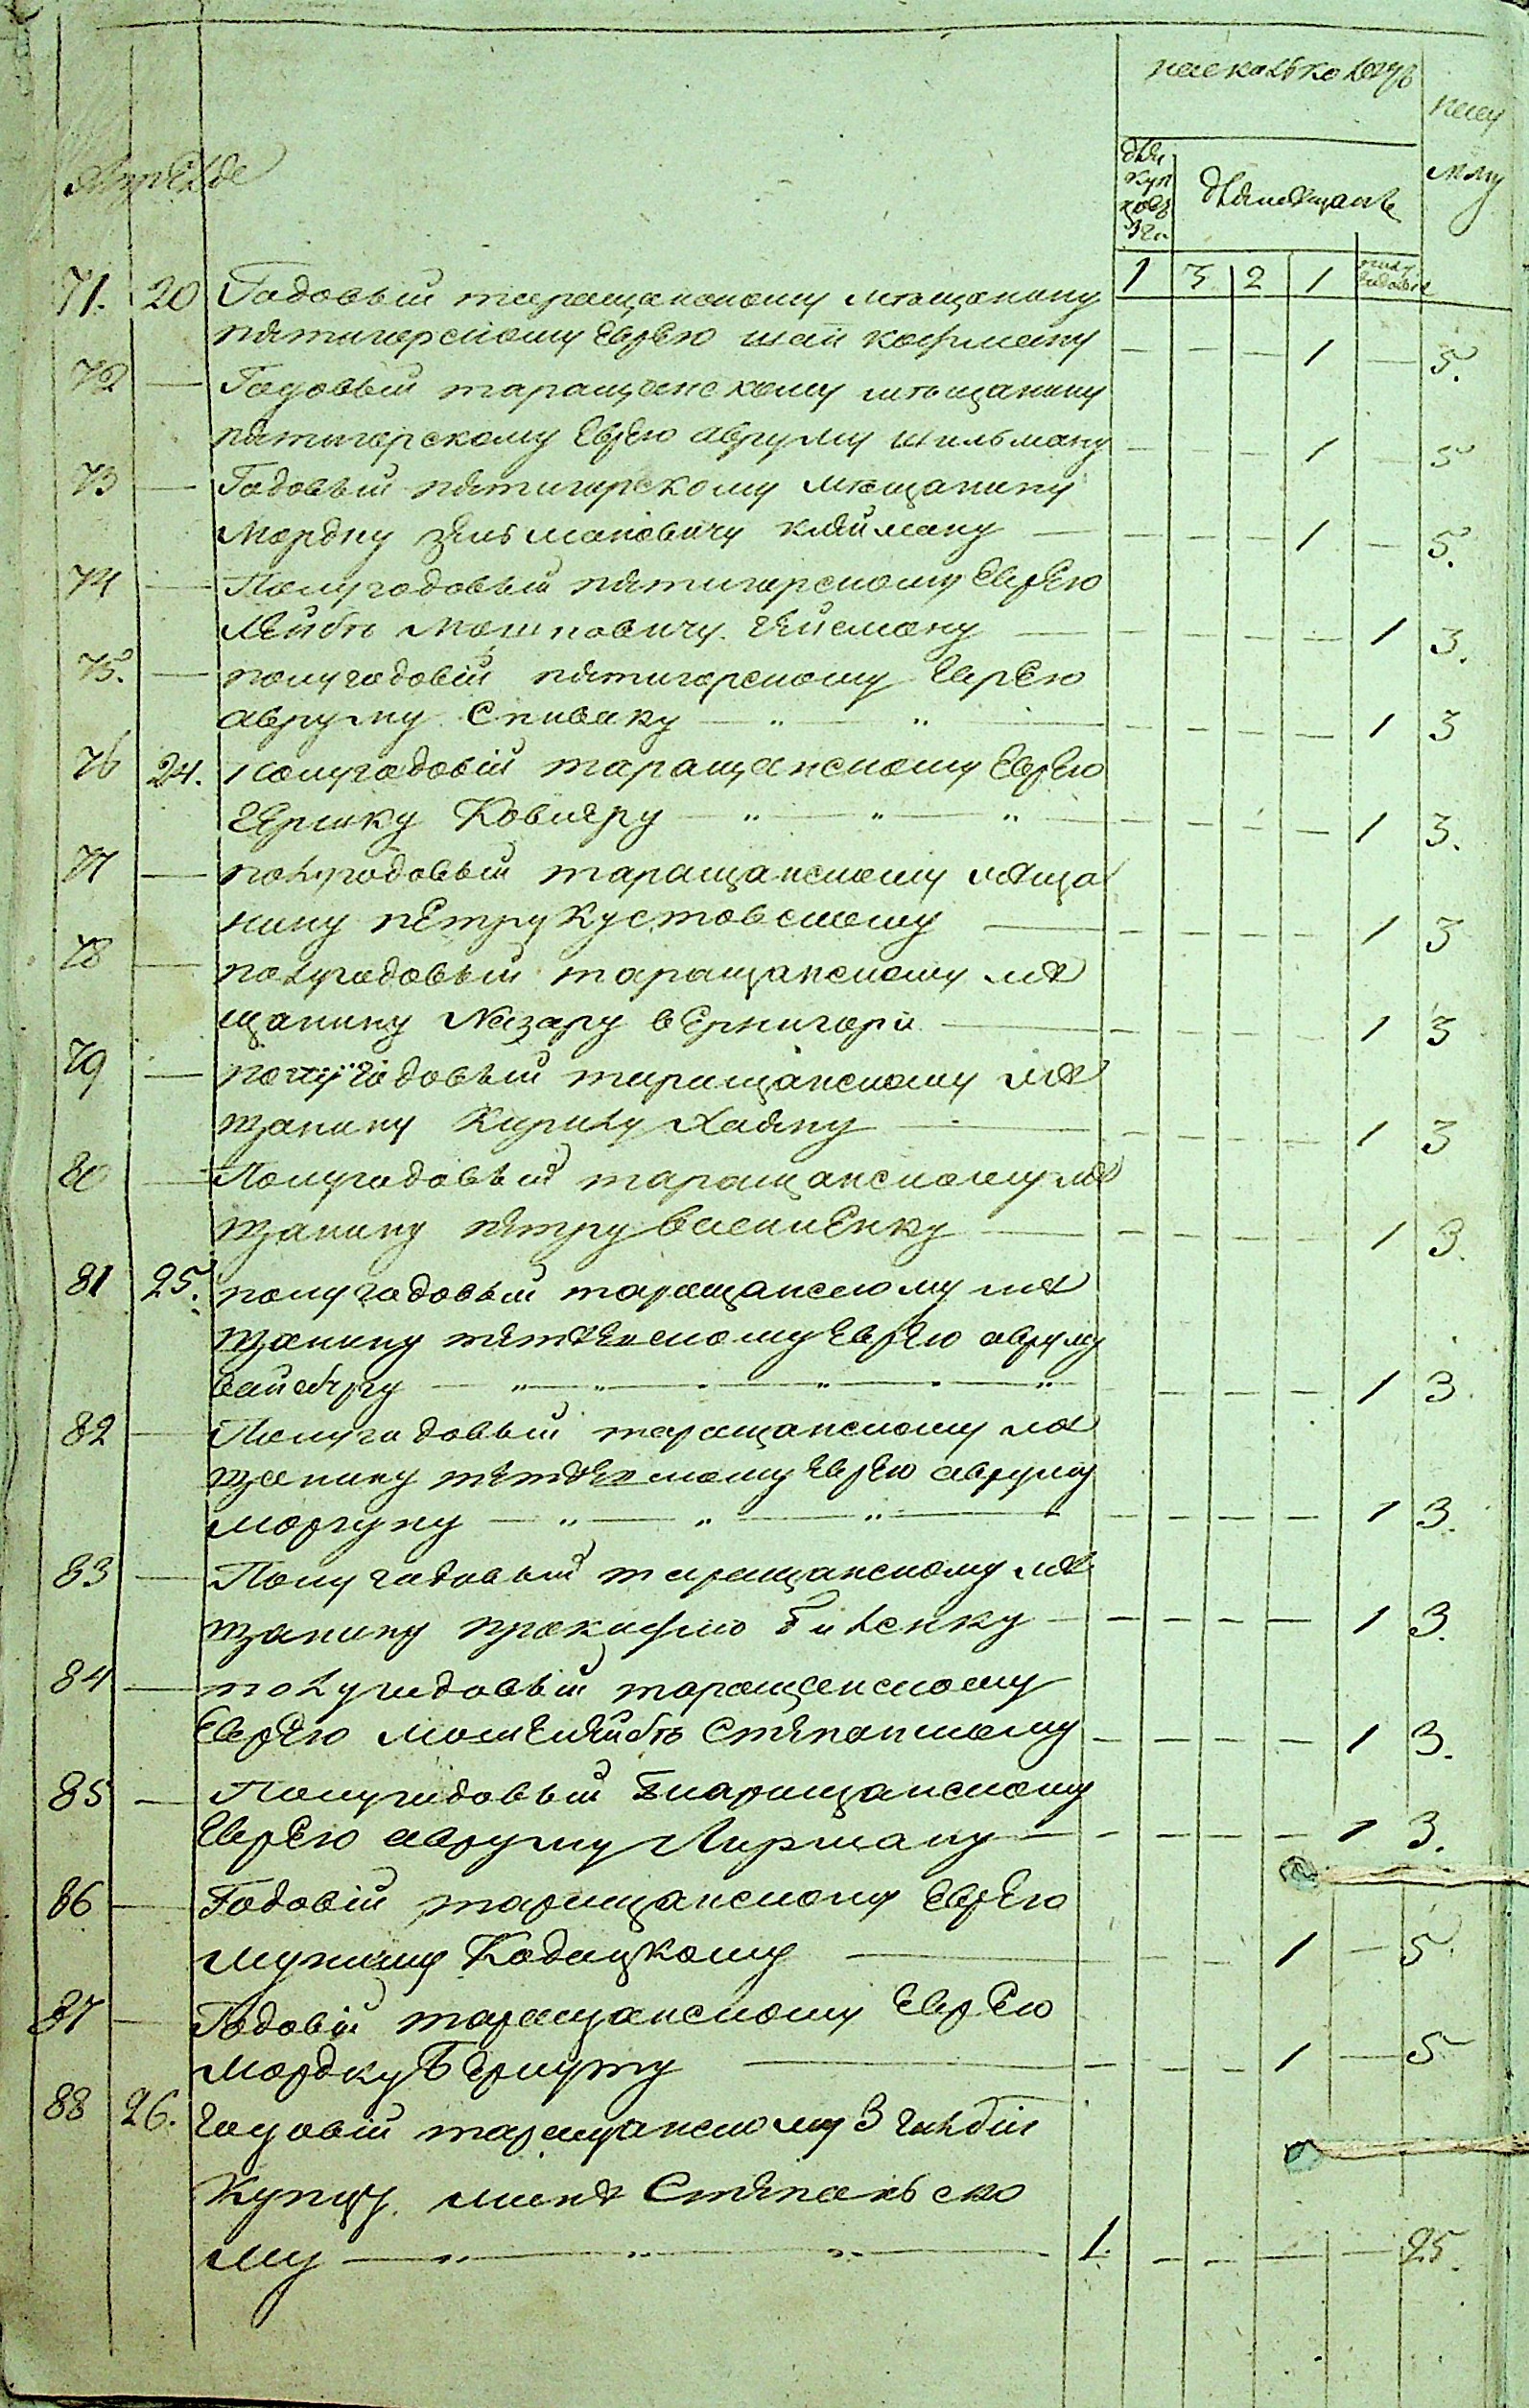 насколько
Апреля
для куп цовъ
для мещанъ
1 3 2 1 полу годовые
71. 20 Годовый таращанскому мѣщанину
пятигорскому Еврею Шаи Кофману — — — 1 — 5.
72 — Годовый таращанскому мѣщанину
пятигорскому Еврею Авруму Шильману — — — 1 — 5
73 — Годовый пятигорскому мѣщанину
Мордку Зельмановичу Клейману — — — — 1 — 5.
74 — Полугодовый пятигорскому Еврею
Лейбѣ Мошковичу Гейсману — — — — — 1 3.
75. — полугодовій пятигорскому Еврею
авруму Спиваку — — — — — 1 3
76 24. полугодовій таращанскому Еврею
Гершку Ковнеру — — — — — 1 3.
77 — полугодовый таращанскому меща
нину петру Кустовскому — — — — — 1 3
78 — полугодовый таращанскому ме
щанину Назару вернигори — — — — — 1 3
79 — полугодовый таращанскому ме
щанину Кирилу — — — — — 1 3
80 — Полугодовый таращанскому ме
щанину петру — — — — — 1 3.
81 25. полугодовый таращанскому ме
щанину Еврею авруму
вайсбергу — — — — — 1 3.
82 — Полугодовый таращанскому ме
щанину Еврею авруму
моргуну — — — — — 1 3.
83 — Полугодовый таращанскому ме
щанину прокофию Биленку — — — — — 1 3.
84 — полугодовый таращанскому
Еврею мошелейбѣ Степанскому — — — — 1 3.
85 — Полугодовый таращанскому
Еврею авруму Лирману — — — — — 1 3.
86 — Годовій таращанскому Еврею
Кодацкому — — — 1 — 5.
87 — Годовій таращанскому Еврею
мордку — — — 1 — 5
88 26. годовій таращанскому 3 гильдіи
Купцу Степансько
му — 1. — — — — 25.